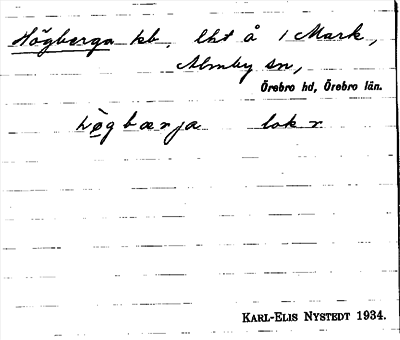 Högberga kb, lht å 1 Mark,
Almby sn,
Örebro hd, Örebro län.
hø̀gbærja lok r
KARL-ELIS NYSTEDT 1934.